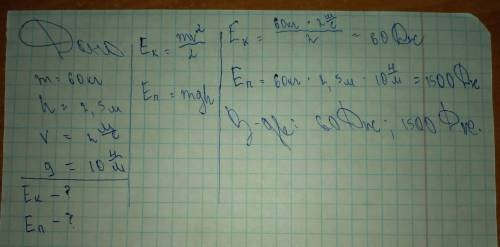 Дано
m = 60кг
h = 2,5м
v = 2 м/с
g = 10 м/с
Eк - ?
Eп - ?
Eк = mv²/2
Eп = mgh
Eк = 60кг · 2 м/с / 2 = 60 Дж
Eп = 60кг · 2,5м · 10 м/с = 1500 Дж
В-дь: 60 Дж ; 1500 Дж.